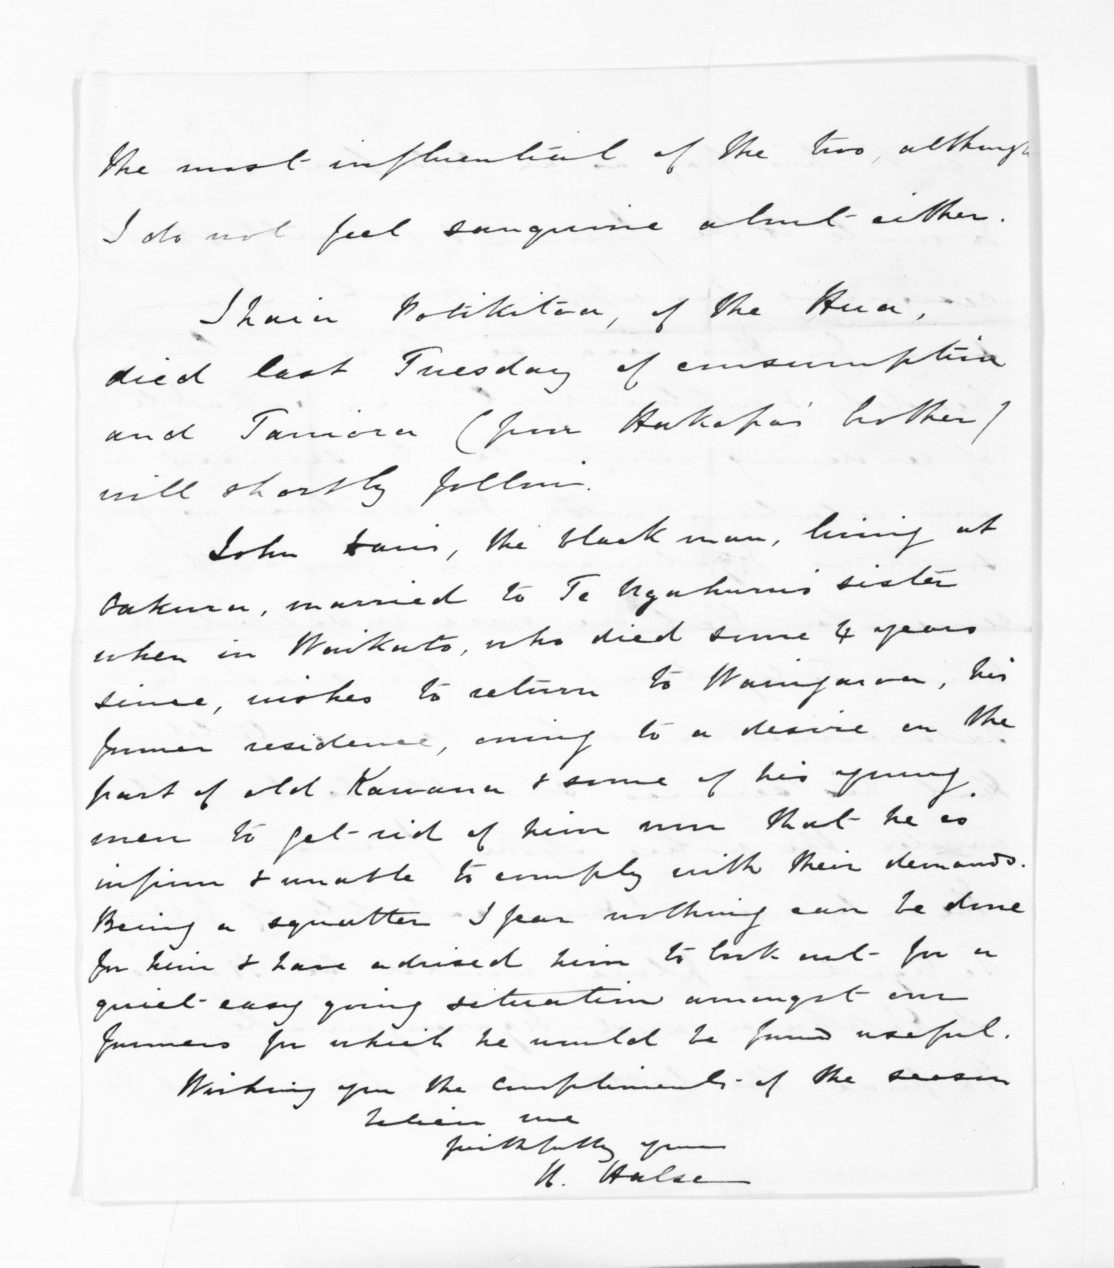 the most influential of the two, although
I do not feel sanguine about either.
Ihaia Potikitoa, of the Hua,
died last Tuesday of consumption
and Tamora (poor Hakopa's brother)
will shortly follow.
John Davis, the black man, living at
Oakura, married to Te Ngahuru's sister
when in Waikato, who died some 4 years
since, wishes to return to Waingaroa, his
former residence, owing to a desire on the
part of old Kawana & some of his young
men to get rid of him now that he is
infirm & unable to comply with their demands.
Being a squatter I fear nothing can be done
for him & have advised him to look out for a
quiet easy going situation amongst our
farmers for which he would be found useful.
Wishing you the compliments of the season
believe me
faithfully yours
H. Halse